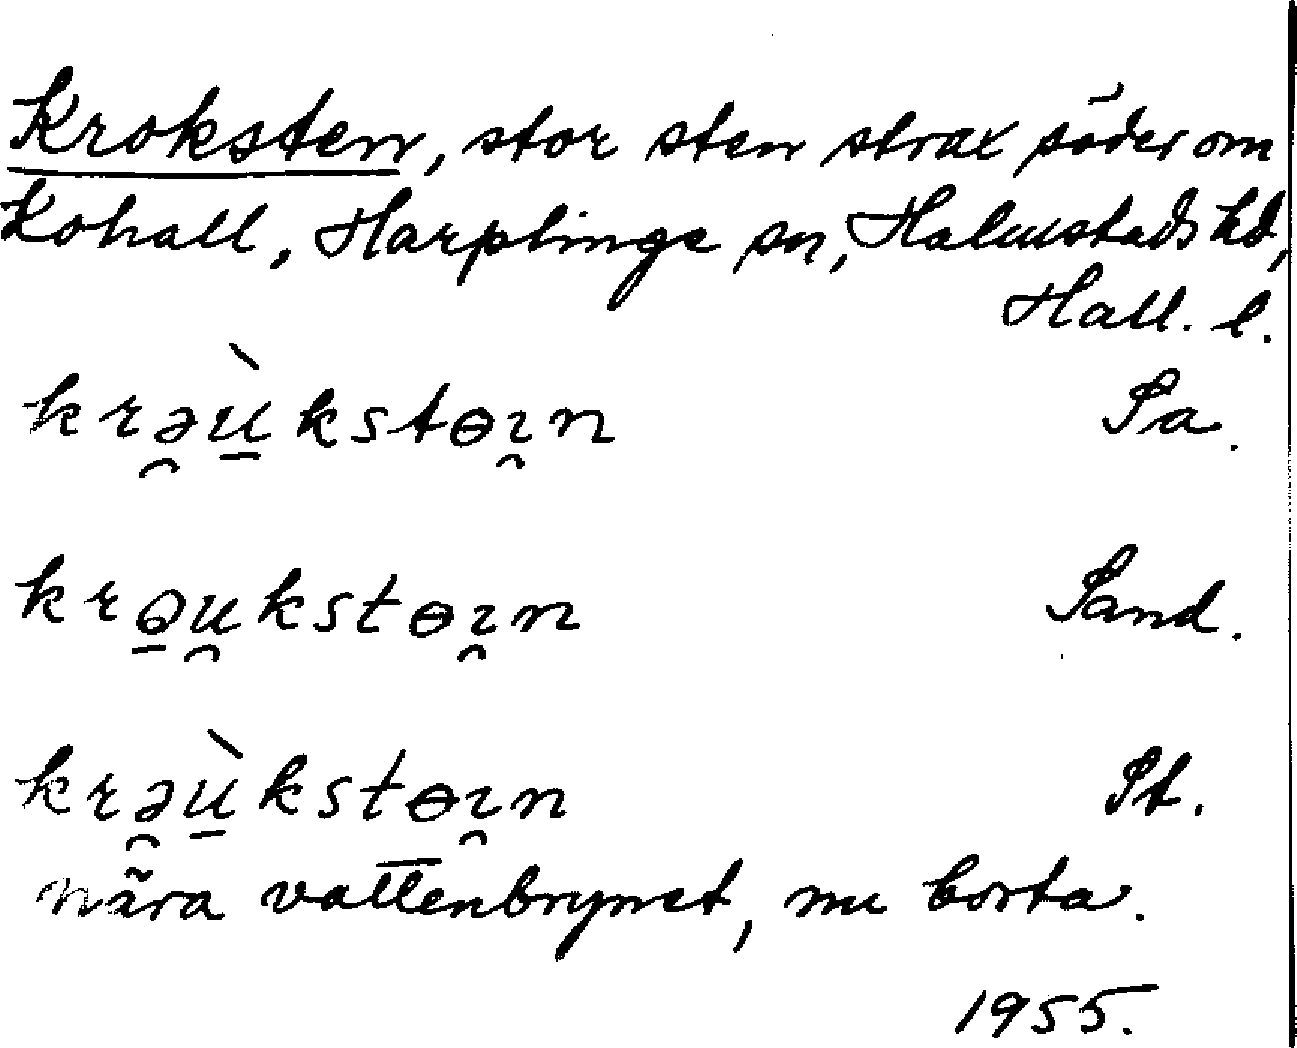 Kroksten, stor sten strax söder om
Kohall, Harplinge sn, Halmstads hd,
Hall. l.
krə̯ù̠kstɵɪ̯n Sa.
krə̠u̯kstɵɪ̯n Sand.
krə̯ù̠kstɵɪ̯n St.
nära vattenbrynet, nu borta.
1955.